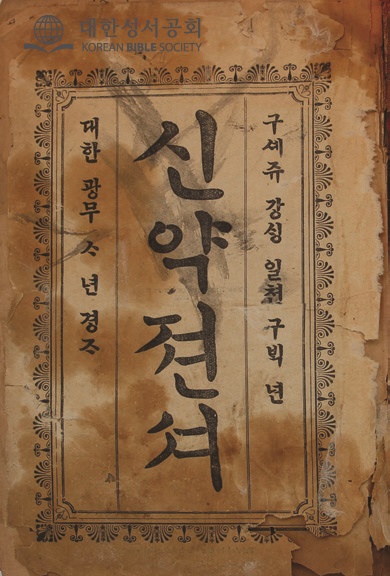 대한성서공회
KOREAN BIBLE SOCIETY
구셰쥬 강ᄉᆡᆼ 일쳔 구ᄇᆡᆨ 년
신약젼셔
대한 광무 ᄉᆞ 년 경ᄌᆞ